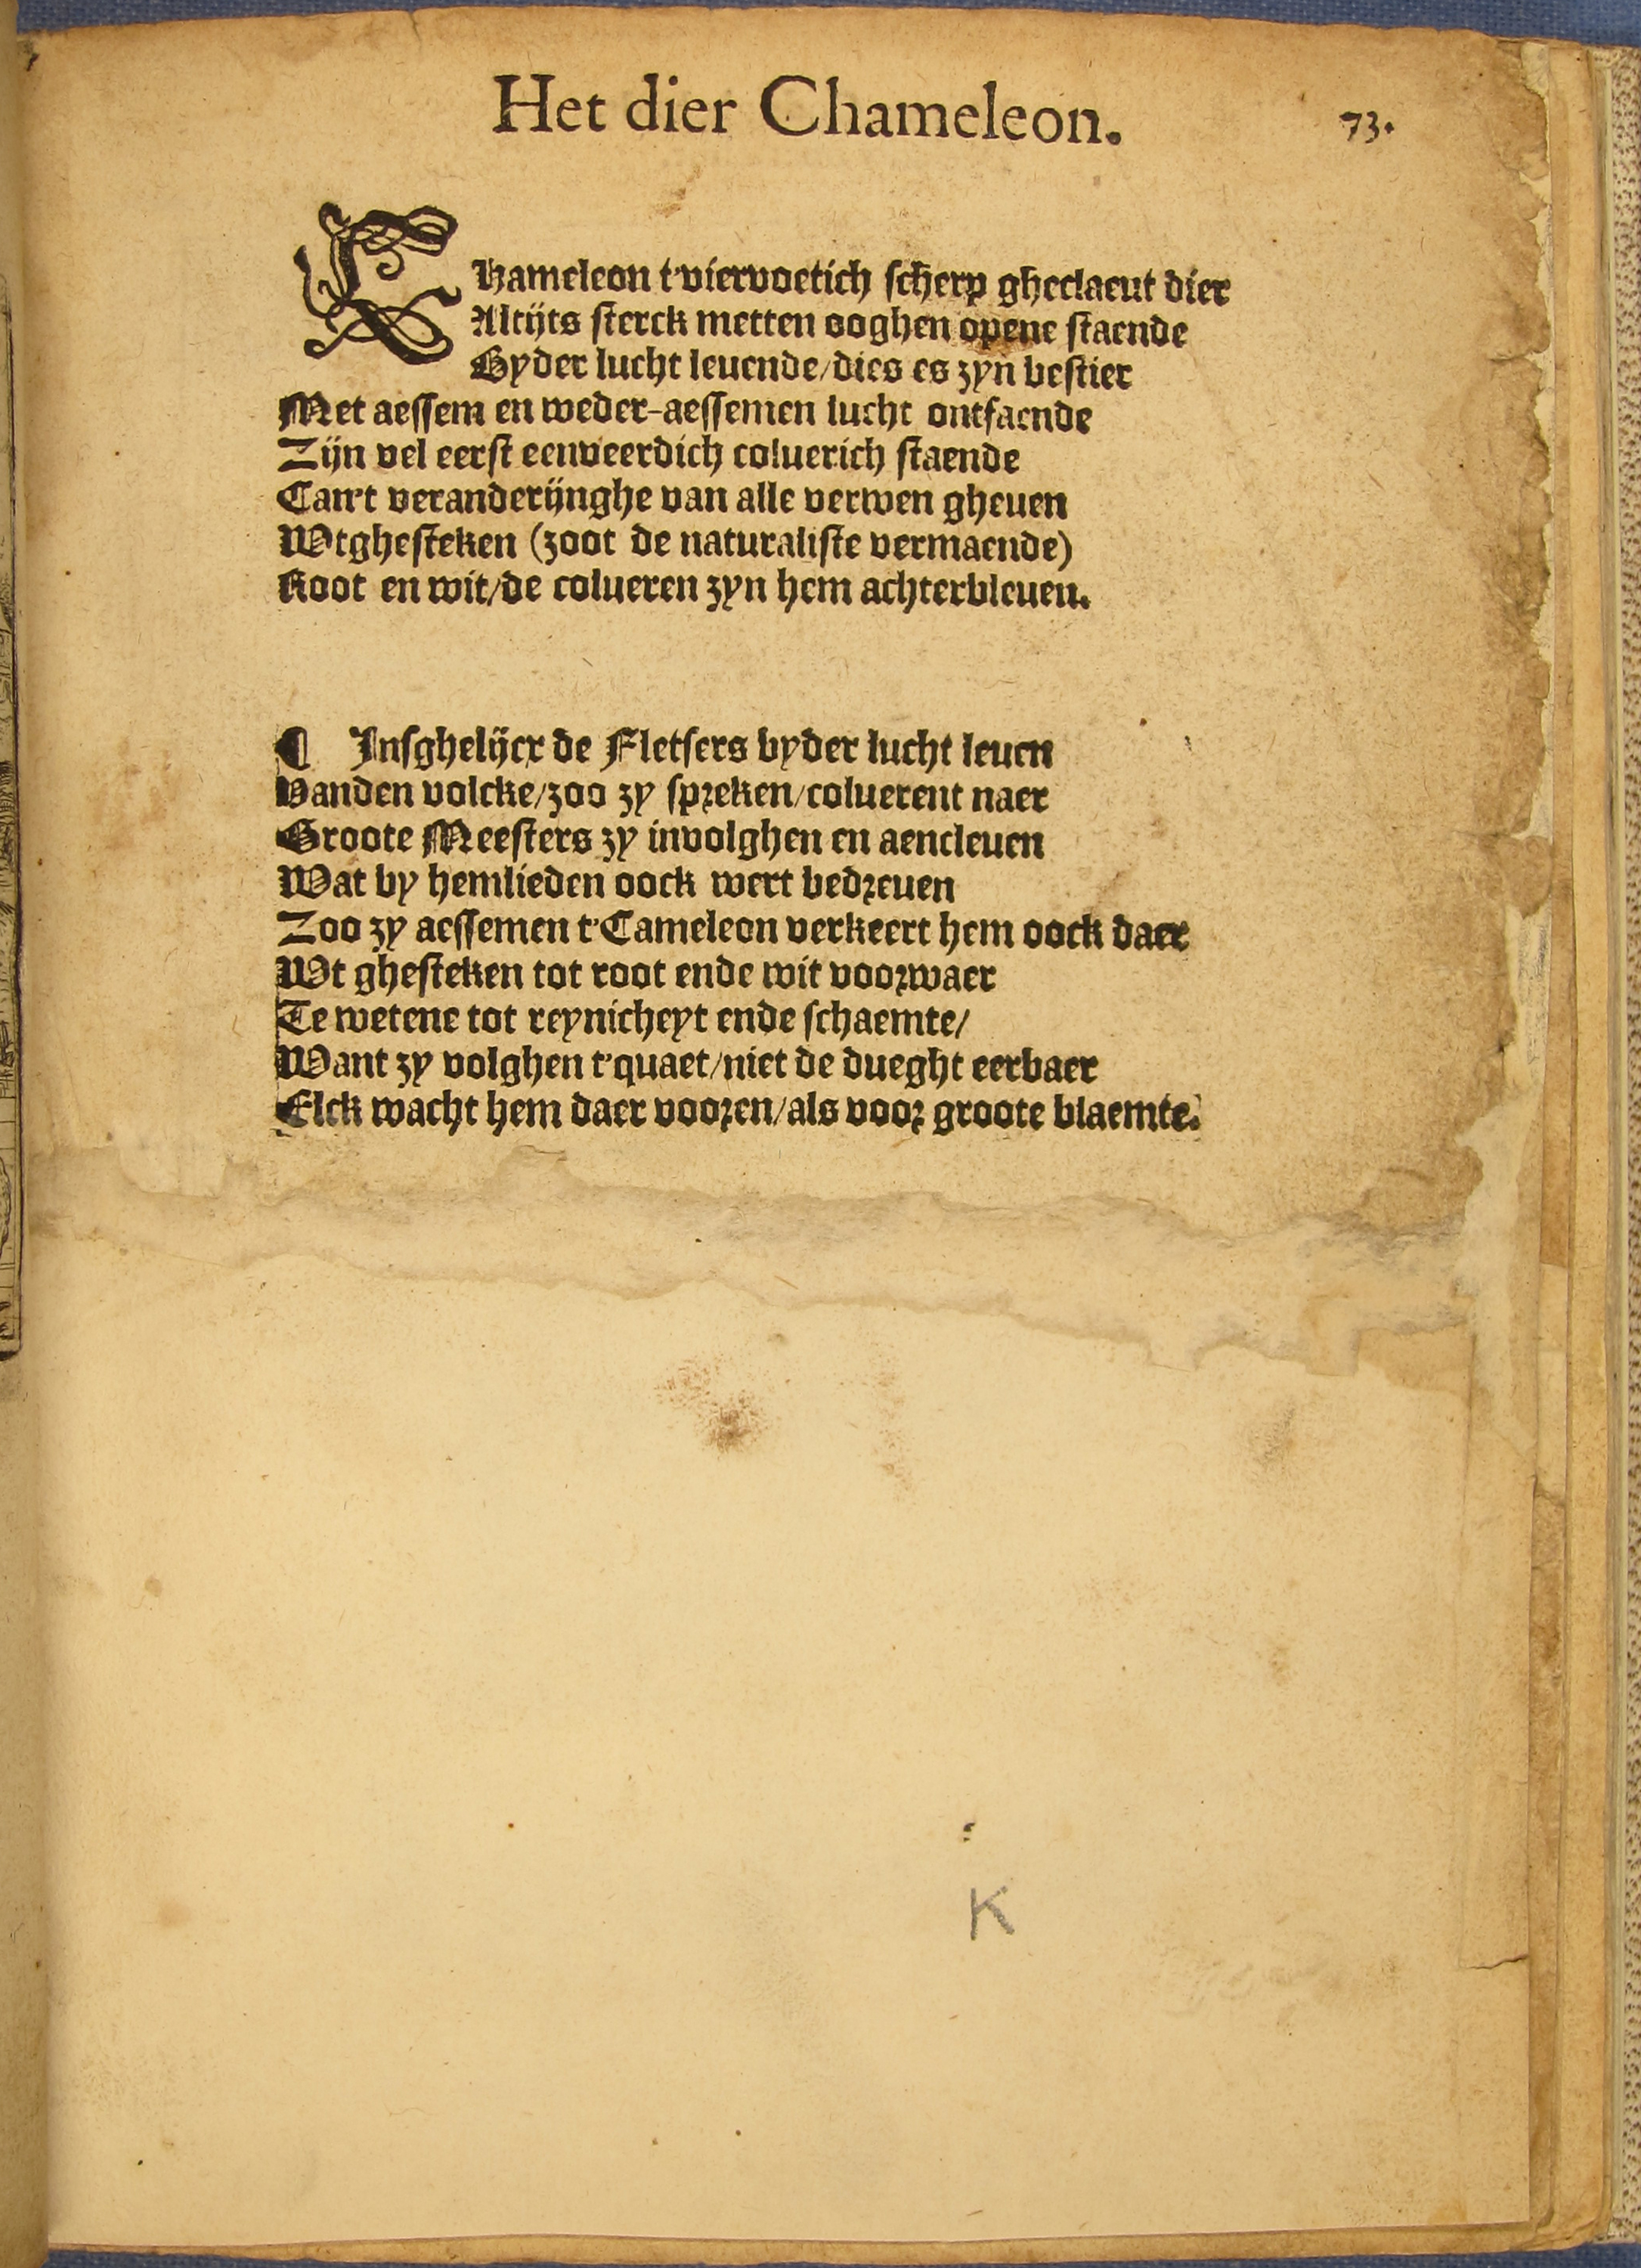 Het dier Chameleon.
73.
CHameleon t'viervoetich scherp gheclaeut dier
Altijts sterck metten ooghen opene staende
Byder lucht leuende/dies es zyn bestier
Met aessem en weder-aessemen lucht ontfaende
Zijn vel eerst eenveerdich coluerich staende
Can't veranderijnghe van alle verwen gheuen
Wtghesteken (zoot de naturaliste vermaende)
Root en wit/de colueren zyn hem achterbleuen.
¶ Insghelijcx de Fletsers byder lucht leuen
Vanden volcke/zoo zy spreken/coluerent naer
Groote Meesters zy involghen en aencleuen
Wat by hemlieden oock wert bedreuen
Zoo zy aessemen t'Cameleon verkeert hem oock daer
Wt ghesteken tot root ende wit voorwaer
Te wetene tot reynicheyt ende schaemte/
Want zy volghen t'quaet/niet de dueght eerbaer
Elck wacht hem daer vooren/als voor groote blaemte.
K